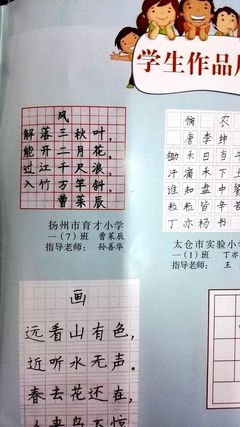 学生作品
风
解落三秋叶，
能开二月花，
过江千尺浪，
入竹万竿斜。
曹茱辰
扬州市育才小学
一（7）班 曹茱辰
指导老师：孙善华
悯 农
唐 李绅
锄禾日当
汗滴禾下
谁知盘中
粒粒皆辛
丁亦杨书
太仓市实验小
一（1）班 丁亦
指导老师：王
画
远看山有色，
近听水无声。
春去花还在，
人来鸟不惊